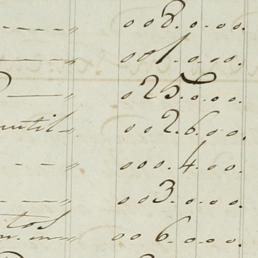 008.0.00.
001.0.00.
025.0.00.
002.6.00
000.4.00
003.0.00.
006.0.00.